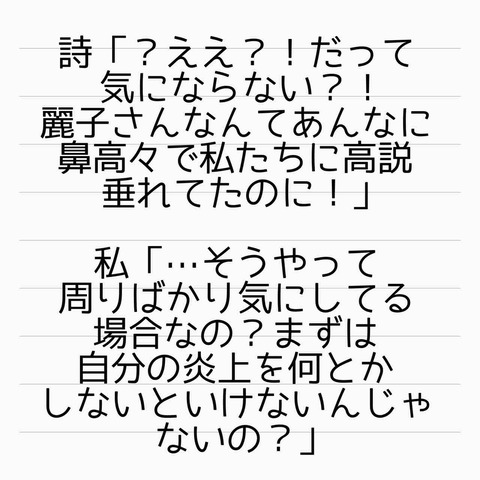 詩「？ええ？！だって
気にならない？！
麗子さんなんてあんなに
鼻高々で私たちに高説
垂れてたのに！」
私「…そうやって
周りばかり気にしてる
場合なの？まずは
自分の炎上を何とか
しないといけないんじゃ
ないの？」